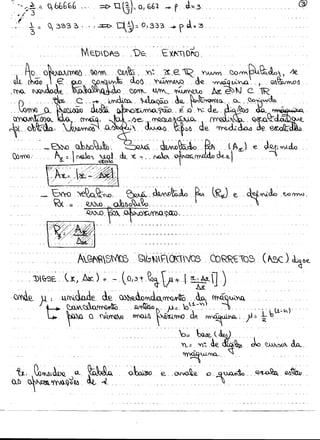 2/3 = 0,66666 ... ⇒ □(2/3) = 0,667 → p/ d=3
③
1/3 = 0,3333... ⇒ □(1/3) = 0,333 → p/ d=3.
MEDIDAS DE EXATIDÃO
Ao operarmos com certo nº x ∈ R num computador, se
ele não ∈ ao conjunto dos números de máquina, estamos
na verdade trabalhando com um número Δx ∈ N ⊂ R
∈ ⊂ → indica relação de pertinência a conjunto
Como a precisão desta aproximação e o nº de dígitos da
mantissa da máq. faz-se necessária medir a exatidão que
foi obtida. Veremos a seguir duas tipos de medidas de exatidão
- Erro absoluto. Será denotado por (Ax) e definido
Como: Ax = | valor real de x - valor aproximado de x |
Ax = | x - Δx |
- Erro relativo. Será denotado por (Rx) e definido como
Rx = erro absoluto
aproximação.
Rx = Ax / Δx
ALGARISMOS SIGNIFICATIVOS CORRETOS (ASC) digse
DIGSE (x, Δx) = - (0,3 + log [μ + |x - Δx| / Δx])
onde μ: unidade de arredondamento da máquina
↳ cancelamento então μ = b^(1-n)
↳ para o número mais próximo de máquina: μ = 1/2 b^(1-n)
b = base (dec)
n = nº de dígitos do cursor da
máquina.
Ex. Considere a tabela abaixo e avalie o quanto exata estão
as aproximações de x